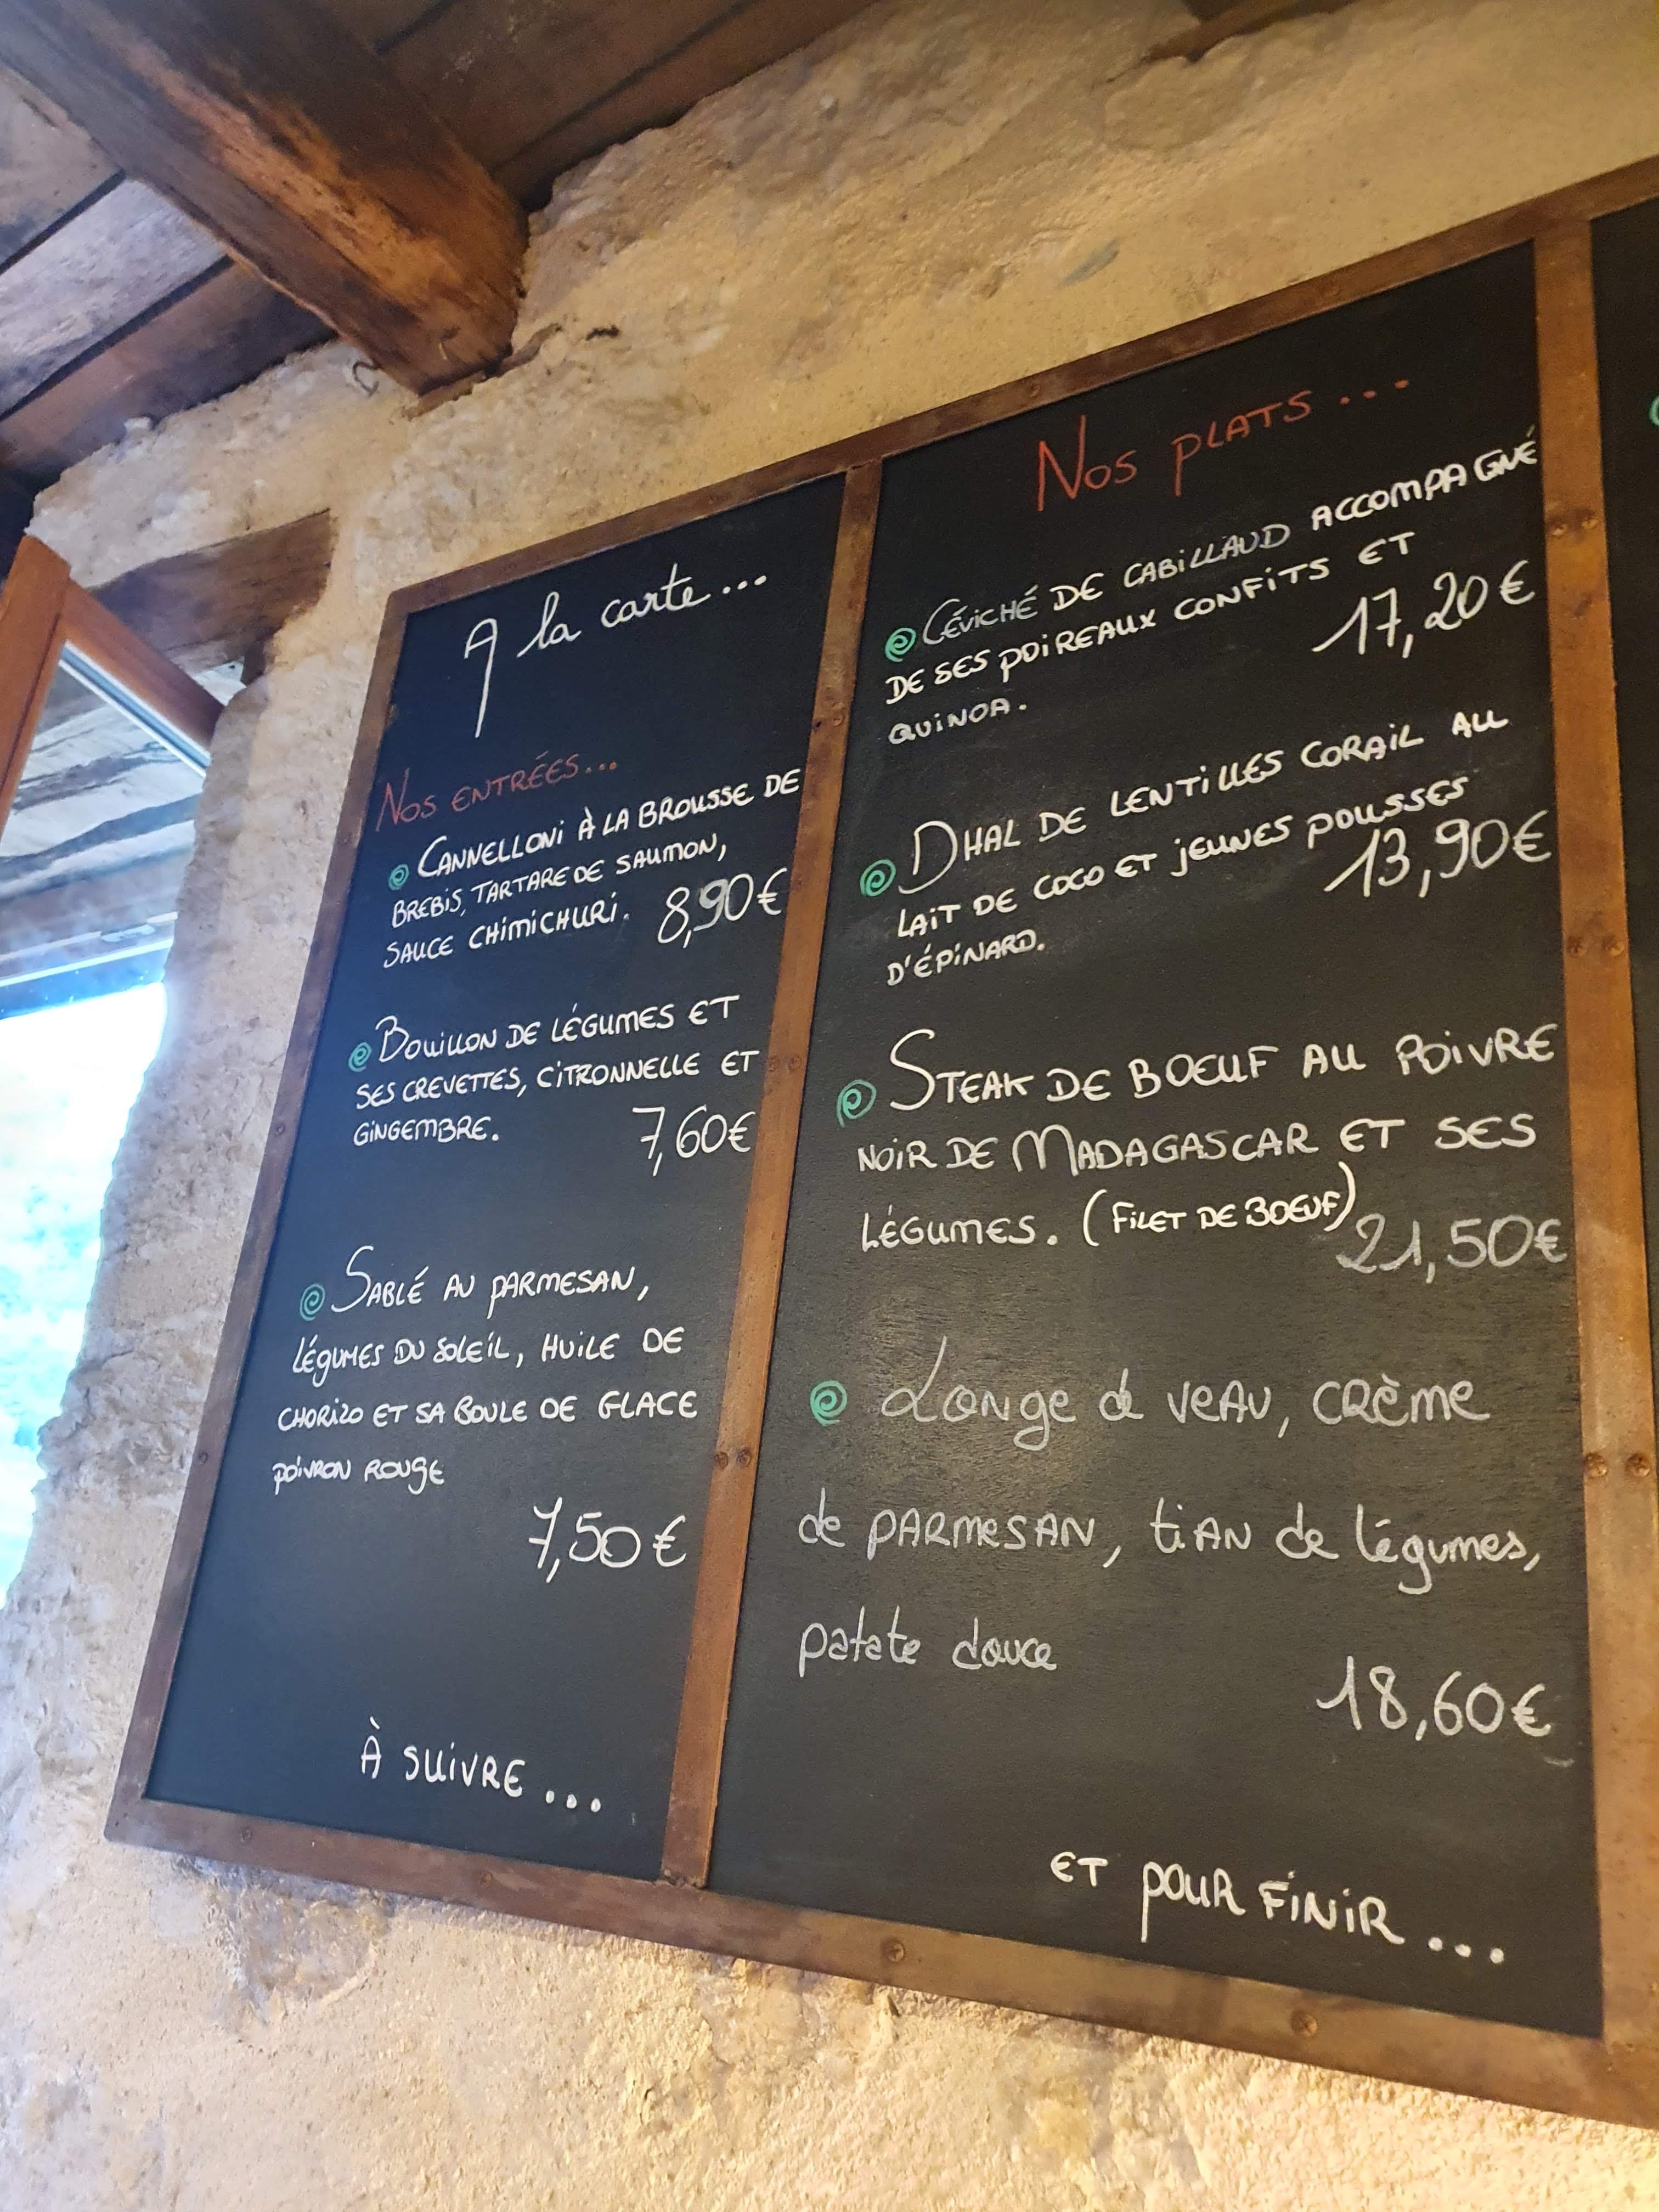 A la carte...
Nos entrées...
Cannelloni à la brousse de
brebis, tartare de saumon,
sauce chimichuri. 8,90€
Bouillon de légumes et
ses crevettes, citronnelle et
gingembre. 7,60€
Sablé au parmesan,
légumes du soleil, huile de
chorizo et sa boule de glace
poivron rouge
7,50€
À suivre...
Nos plats...
Céviché de cabillaud accompagné
de ses poireaux confits et
quinoa. 17,20€
Dhal de lentilles corail au
lait de coco et jeunes pousses
d'épinard. 13,90€
Steak de boeuf au poivre
noir de Madagascar et ses
légumes. (Filet de boeuf)
21,50€
Longe de veau, crème
de parmesan, tian de légumes,
patate douce
18,60€
Et pour finir...